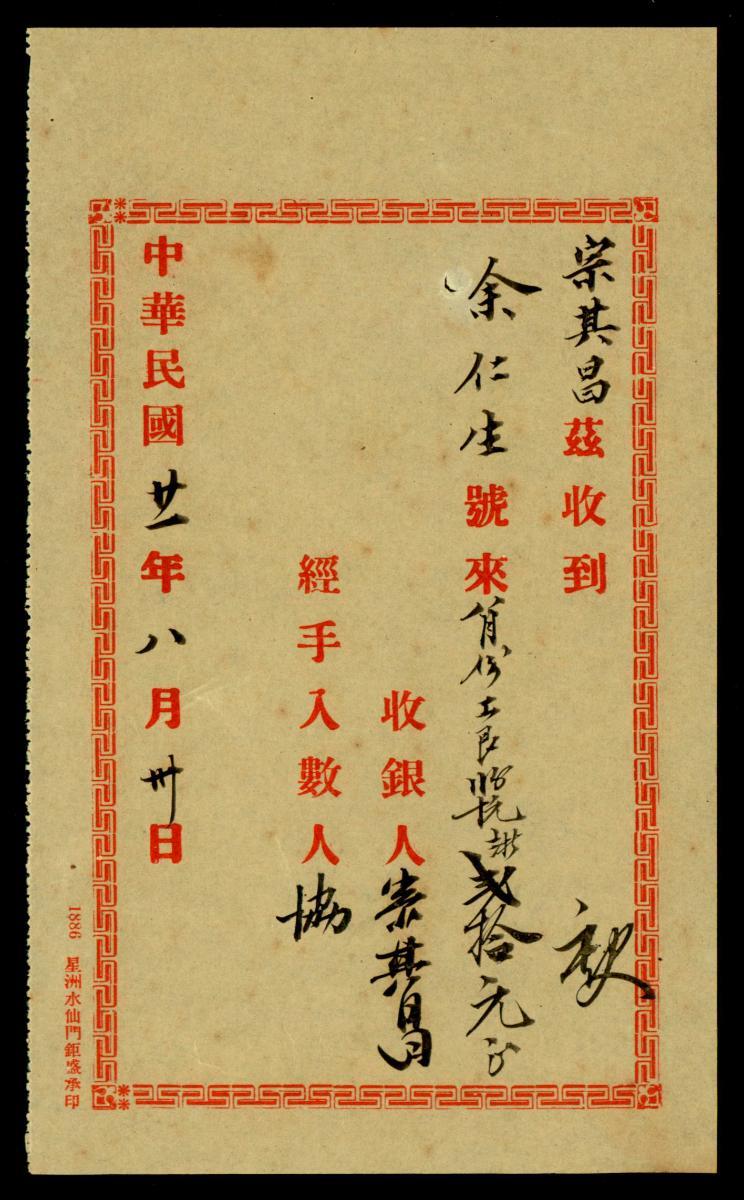 宗其昌茲收到
余仁生號來貳拾元
收銀人宗其昌
經手入數人協
中華民國廿一年八月卅日
1886 星洲水仙門鉅盛承印